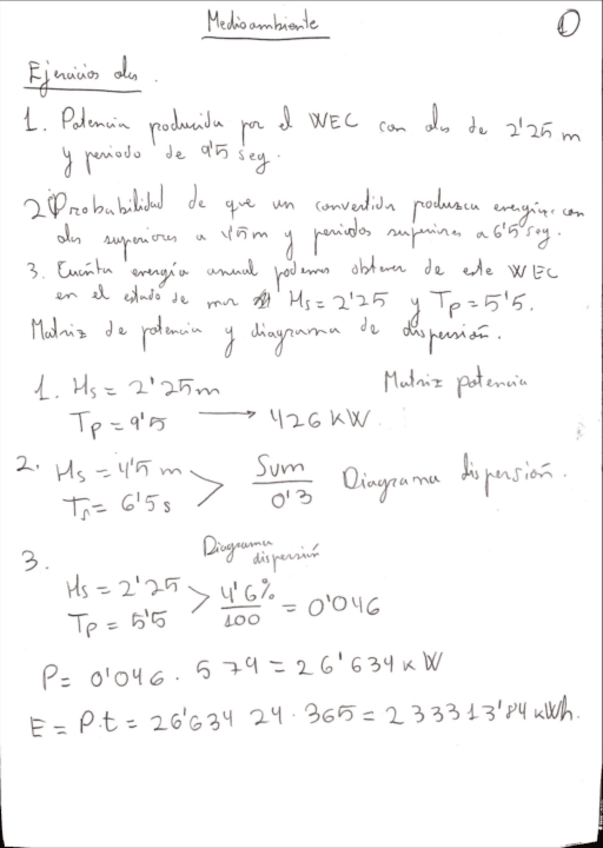 Medioambiente
1
Ejercicios olas.
1. Potencia producida por el WEC con olas de 2'25 m
y periodo de 9'5 seg.
2. Probabilidad de que un convertidor produzca energía con
olas superiores a 4'5m y periodos superiores a 6'5 seg.
3. Cuánta energía anual podemos obtener de este WEC
en el estado de mar Hs = 2'25 y Tp = 5'5.
Matriz de potencia y diagrama de dispersión.
1. Hs = 2'25m Matriz potencia
Tp = 9'5 → 426 KW.
2. Hs = 4'5 m > Sum / 0'3 Diagrama dispersión.
Tp = 6'5 s
3. Diagrama dispersión
Hs = 2'25 > 4'6% / 100 = 0'046
Tp = 5'5
P = 0'046 . 579 = 26'634 KW
E = P.t = 26'634 24 . 365 = 233313'84 kWh.